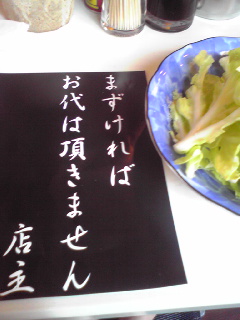 まずければ
お代は頂きません
店主